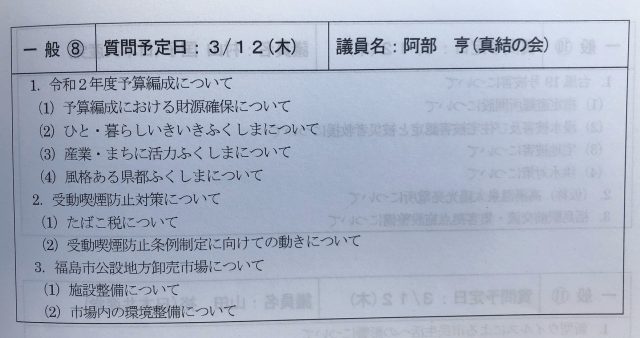 一 般 ⑧ 質問予定日：３／１２(木) 議員名：阿部 亨(真結の会)
1. 令和２年度予算編成について
(1) 予算編成における財源確保について
(2) ひと・暮らしいきいきふくしまについて
(3) 産業・まちに活力ふくしまについて
(4) 風格ある県都ふくしまについて
2. 受動喫煙防止対策について
(1) たばこ税について
(2) 受動喫煙防止条例制定に向けての動きについて
3. 福島市公設地方卸売市場について
(1) 施設整備について
(2) 市場内の環境整備について